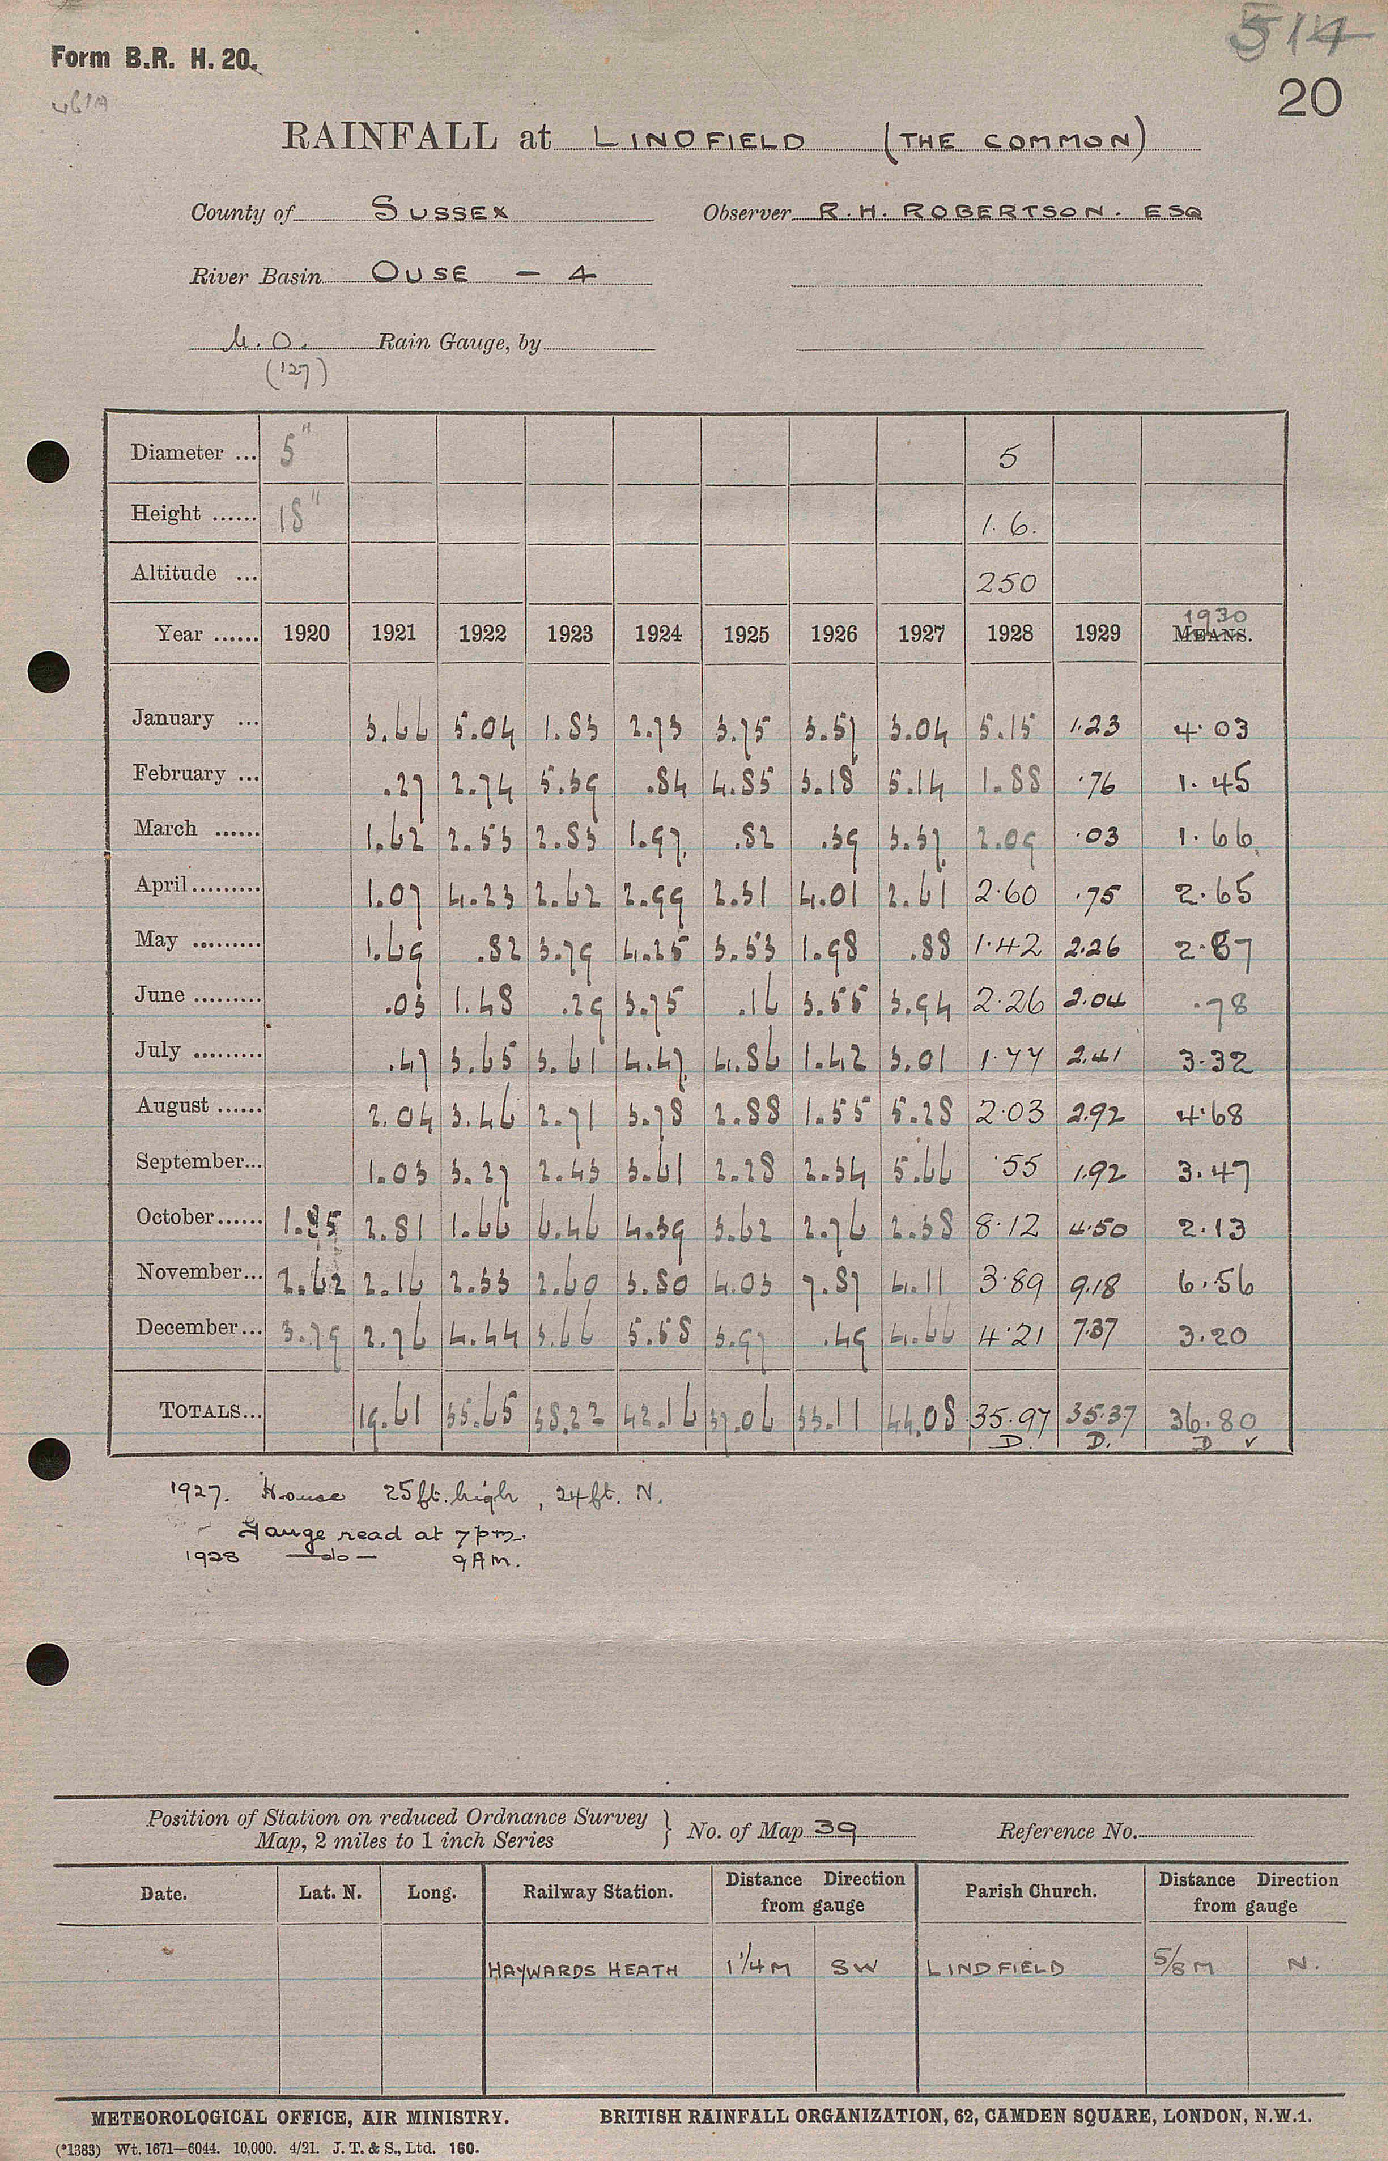 514
Form B.R. H. 20.
20
461A
RAINFALL at LINDFIELD (THE COMMON)
County of SUSSEX Observer R.H. ROBERTSON. ESQ
River Basin OUSE - 4
M.O. Rain Gauge, by
(127)
Diameter ... 5" 5
Height ...... 18" 1.6.
Altitude ... 250
1930
Year ...... 1920 1921 1922 1923 1924 1925 1926 1927 1928 1929 MEANS.
January ... 3.66 5.04 1.83 2.73 3.75 3.57 3.04 5.15 1.23 4.03
February ... .27 2.74 5.39 .84 4.85 3.18 5.14 1.88 .76 1.45
March ...... 1.62 2.53 2.83 1.97 .82 .39 3.37 2.09 .03 1.66
April......... 1.07 4.23 2.62 2.99 2.31 4.01 2.61 2.60 .75 2.65
May ......... 1.69 .82 3.79 4.25 3.53 1.98 .88 1.42 2.26 2.87
June ......... .03 1.48 .29 3.75 .16 3.55 3.94 2.26 2.04 .78
July ......... .47 3.65 3.61 4.47 4.86 1.42 3.01 1.77 2.41 3.32
August ...... 2.04 3.46 2.71 3.78 2.88 1.55 5.28 2.03 2.92 4.68
September... 1.03 3.27 2.43 3.61 2.28 2.34 5.66 .55 1.92 3.47
October...... 2.81 1.66 6.46 4.39 3.62 2.76 2.38 8.12 4.50 2.13
November... 2.62 2.16 2.33 2.60 3.80 4.03 7.87 4.11 3.89 9.18 6.56
December... 3.79 2.76 4.44 3.66 5.58 3.97 .49 4.66 4.21 7.37 3.20
TOTALS... 19.61 35.65 38.22 42.16 37.06 33.11 44.08 35.97 35.37 36.80
D. D. D ✓
1927. House 25ft. high, 24ft. N.
Gauge read at 7pm.
1928 —do— 9AM.
Position of Station on reduced Ordnance Survey
Map, 2 miles to 1 inch Series } No. of Map 39 Reference No.
Date. Lat. N. Long. Railway Station. Distance Direction from gauge Parish Church. Distance Direction from gauge
HAYWARDS HEATH 1 1/4 M SW LINDFIELD 5/8 M N.
METEOROLOGICAL OFFICE, AIR MINISTRY. BRITISH RAINFALL ORGANIZATION, 62, CAMDEN SQUARE, LONDON, N.W.1.
(*1383) Wt. 1671—6044. 10,000. 4/21. J. T. & S., Ltd. 160.